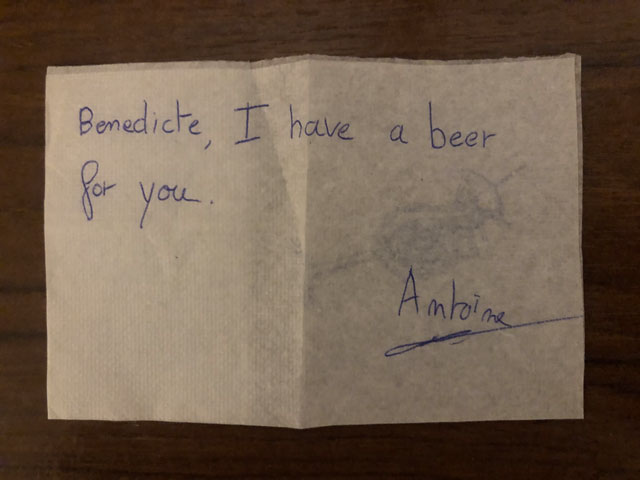 Benedicte, I have a beer
for you.
Antoine